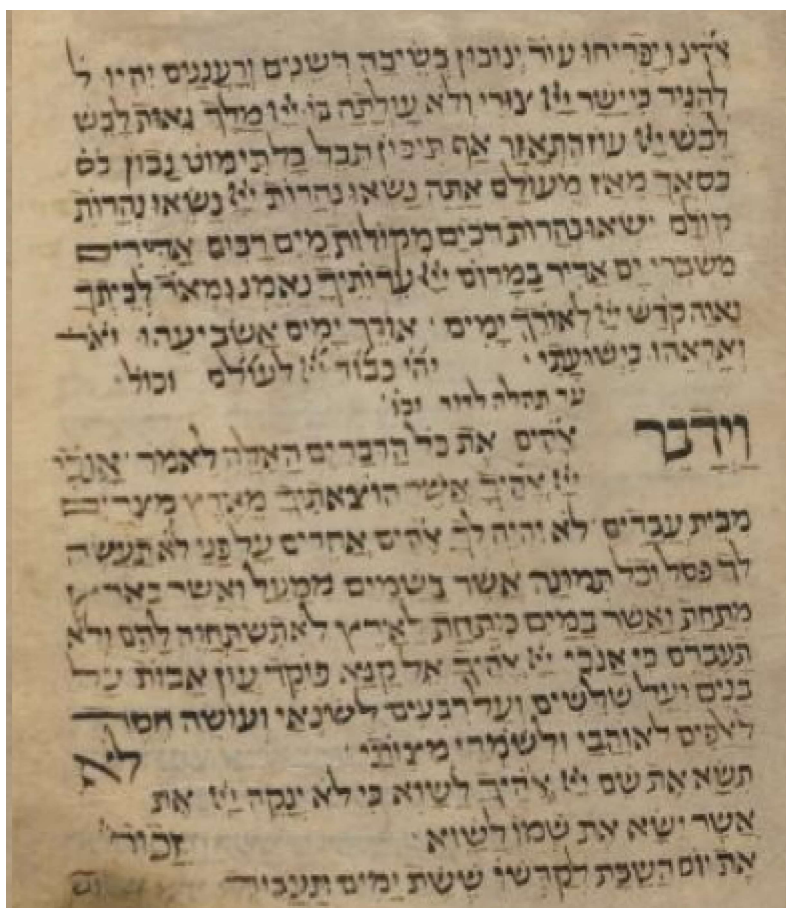 אלהינו יפריחו עוד ינובון בשיבה דשנים ורעננים יהיו ל
להגיד כי ישר ייי צורי ולא עולתה בו ייי מלך גאות לבש
לבש ייי עוז התאזר אף תיכון תבל בל תימוט נכון כס
כסאך מאז מעולם אתה נשאו נהרות ייי נשאו נהרות
קולם ישאו נהרות דכים מקולות מים רבים אדירים
משברי ים אדיר במרום ייי עדותיך נאמנו מאד לביתך
נאוה קדש ייי לאורך ימים אורך ימים אשביעהו ואר
ואראהו בישועתי יהי כבוד ייי לעולם וכול
עד תהלה לדוד וכו
וידבר
אלהים את כל הדברים האלה לאמר אנכי
ייי אלהיך אשר הוצאתיך מארץ מצרים
מבית עבדים לא יהיה לך אלהים אחרים על פני לא תעשה
לך פסל וכל תמונה אשר בשמים ממעל ואשר בארץ
מתחת ואשר במים מתחת לארץ לא תשתחוה להם ולא
תעבדם כי אנכי ייי אלהיך אל קנא פוקד עון אבות על
בנים ועל שלשים ועל רבעים לשונאי ועושה חסד
לאלפים לאוהבי ולשמרי מצותי
לא
תשא את שם ייי אלהיך לשוא כי לא ינקה ייי את
אשר ישא את שמו לשוא זכור
את יום השבת לקדשו ששת ימים תעבוד